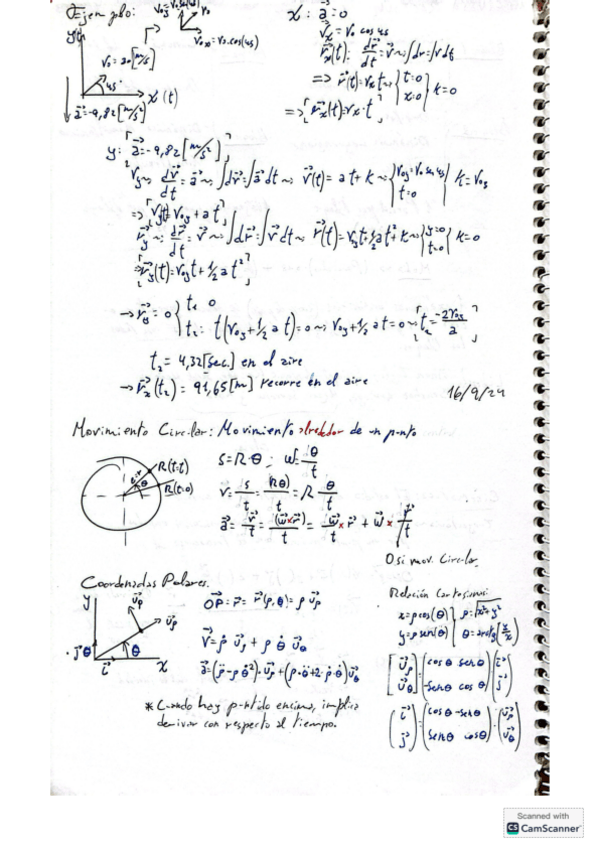 Ejemplo:
V₀y = V₀ sen(45)
V₀
V₀x = V₀·cos(45)
y
V₀ = 30 [m/s]
45°
x (t)
a⃗ = -9,82 [m/s²]
x: a⃗ = 0
Vx = V₀ cos 45
r⃗x(t): dr⃗/dt = v⃗ ~> ∫dr = ∫v dt
=> r⃗(t) = Vx t ~> { t=0 x=0 } k=0
=> r⃗x(t) = Vx·t
y: a⃗ = -9,82 [m/s²]
Vy ~> dv⃗/dt = a⃗ ~> ∫dv⃗ = ∫a⃗ dt ~> v⃗(t) = at + k ~> { V₀y = V₀ sen 45 t=0 } k = V₀y
=> Vy(t) = V₀y + at
r⃗y ~> dr⃗/dt = v⃗ ~> ∫dr⃗ = ∫v⃗ dt ~> r⃗(t) = V₀y t + 1/2 a t² + k ~> { y=0 t=0 } k=0
=> r⃗y(t) = V₀y t + 1/2 a t²
→ r⃗y = 0 { t₁ 0
t₂: t(V₀y + 1/2 a t) = 0 ~> V₀y + 1/2 at = 0 ~> t₂ = -2V₀y/a
t₂ = 4,32 [sec.] en el aire
→ r⃗x(t₂) = 91,65 [m] recorre en el aire
16/9/24
Movimiento Circular: Movimiento alrededor de un punto
R(t=t)
R(t=0)
θ
S = R·θ ; ω = θ/t
v⃗ = s/t = (Rθ)/t = R θ/t
a⃗ = v⃗/t = (ω⃗×r⃗)/t = ω⃗/t × r⃗ + ω⃗ × r⃗/t
0 si mov. Circular
Coordenadas Polares.
y
u⃗ρ
j⃗
θ
i⃗
x
OP⃗ = r⃗ = r⃗(ρ,θ) = ρ u⃗ρ
v⃗ = ρ̇ u⃗ρ + ρ θ̇ u⃗θ
a⃗ = (ρ̈ - ρ θ̇²)·u⃗ρ + (ρ·θ̈ + 2·ρ̇·θ̇) u⃗θ
* Cuando hay puntido encima, implica
derivar con respecto al tiempo.
Relación Cartesianas:
x = ρ cos(θ) } ρ = √x²+y²
y = ρ sen(θ) } θ = arctg(y/x)
[u⃗ρ u⃗θ] = (cos θ sen θ -sen θ cos θ)(i⃗ j⃗)
(i⃗ j⃗) = (cos θ -sen θ sen θ cos θ)·(u⃗ρ u⃗θ)
Scanned with
CS CamScanner